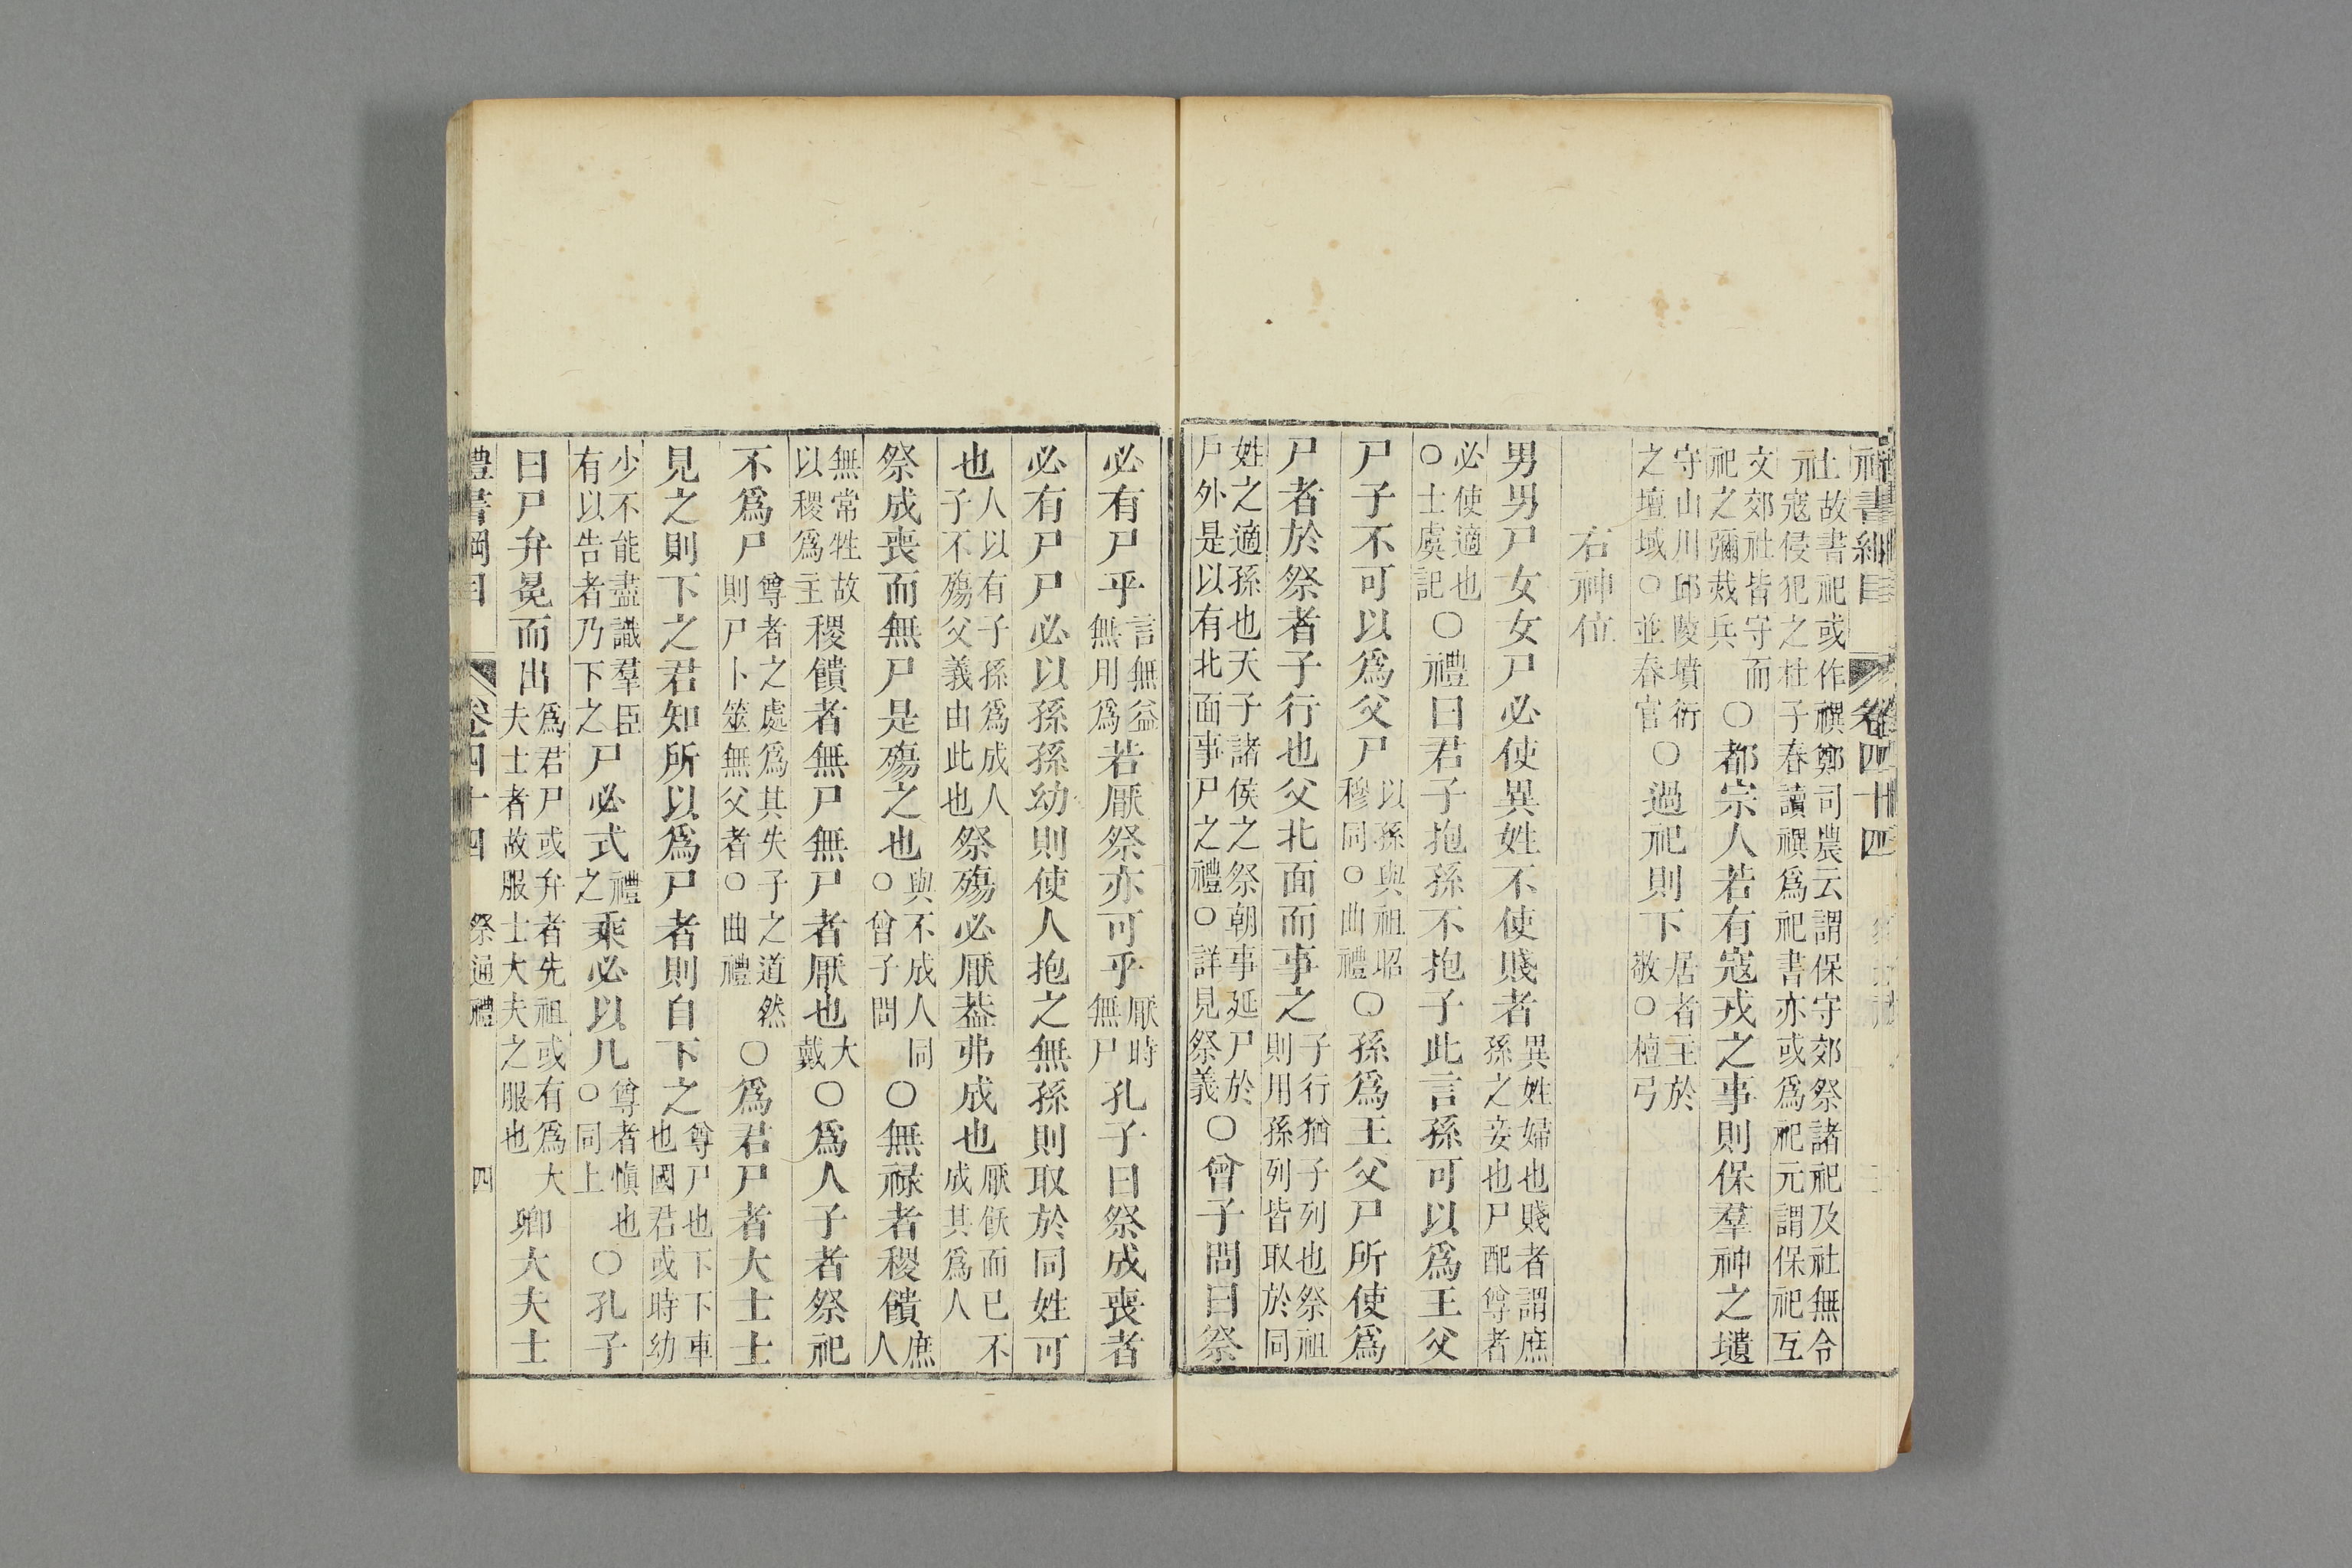 禮書綱目 卷四十四
社故書祀或作禩鄭司農云謂保守郊祭諸祀及社無令寇侵犯之杜子春讀禩爲祀書亦或爲祀元謂保祀互
文郊社皆守而祀之彌烖兵〇都宗人若有寇戎之事則保羣神之壝
守山川邱陵墳衍之壇域〇並春官〇過祀則下居者主於敬〇檀弓
右神位
男男尸女女尸必使異姓不使賤者異姓婦也賤者謂庶孫之妾也尸配尊者
必使適也〇士虞記〇禮曰君子抱孫不抱子此言孫可以爲王父
尸子不可以爲父尸以孫與祖昭穆同〇曲禮〇孫爲王父尸所使爲
尸者於祭者子行也父北面而事之子行猶子列也祭祖則用孫列皆取於同
姓之適孫也天子諸侯之祭朝事延尸於戶外是以有北面事尸之禮〇詳見祭義〇曾子問曰祭
必有尸乎言無益無用爲若厭祭亦可乎厭時無尸孔子曰祭成喪者
必有尸尸必以孫孫幼則使人抱之無孫則取於同姓可
也人以有子孫爲成人子不殤父義由此也祭殤必厭葢弗成也厭飫而已不成其爲人
祭成喪而無尸是殤之也與不成人同〇曾子問〇無祿者稷饋庶人
無常牲故以稷爲主稷饋者無尸無尸者厭也大戴〇爲人子者祭祀
不爲尸尊者之處爲其失子之道然則尸卜筮無父者〇曲禮〇爲君尸者大士士
見之則下之君知所以爲尸者則自下之尊尸也下下車也國君或時幼
少不能盡識羣臣有以告者乃下之尸必式禮之乘必以几尊者慎也〇同上〇孔子
曰尸弁冕而出爲君尸或弁者先祖或有爲大夫士者故服士大夫之服也卿大夫士
禮書綱目 卷四十四 祭通禮 四